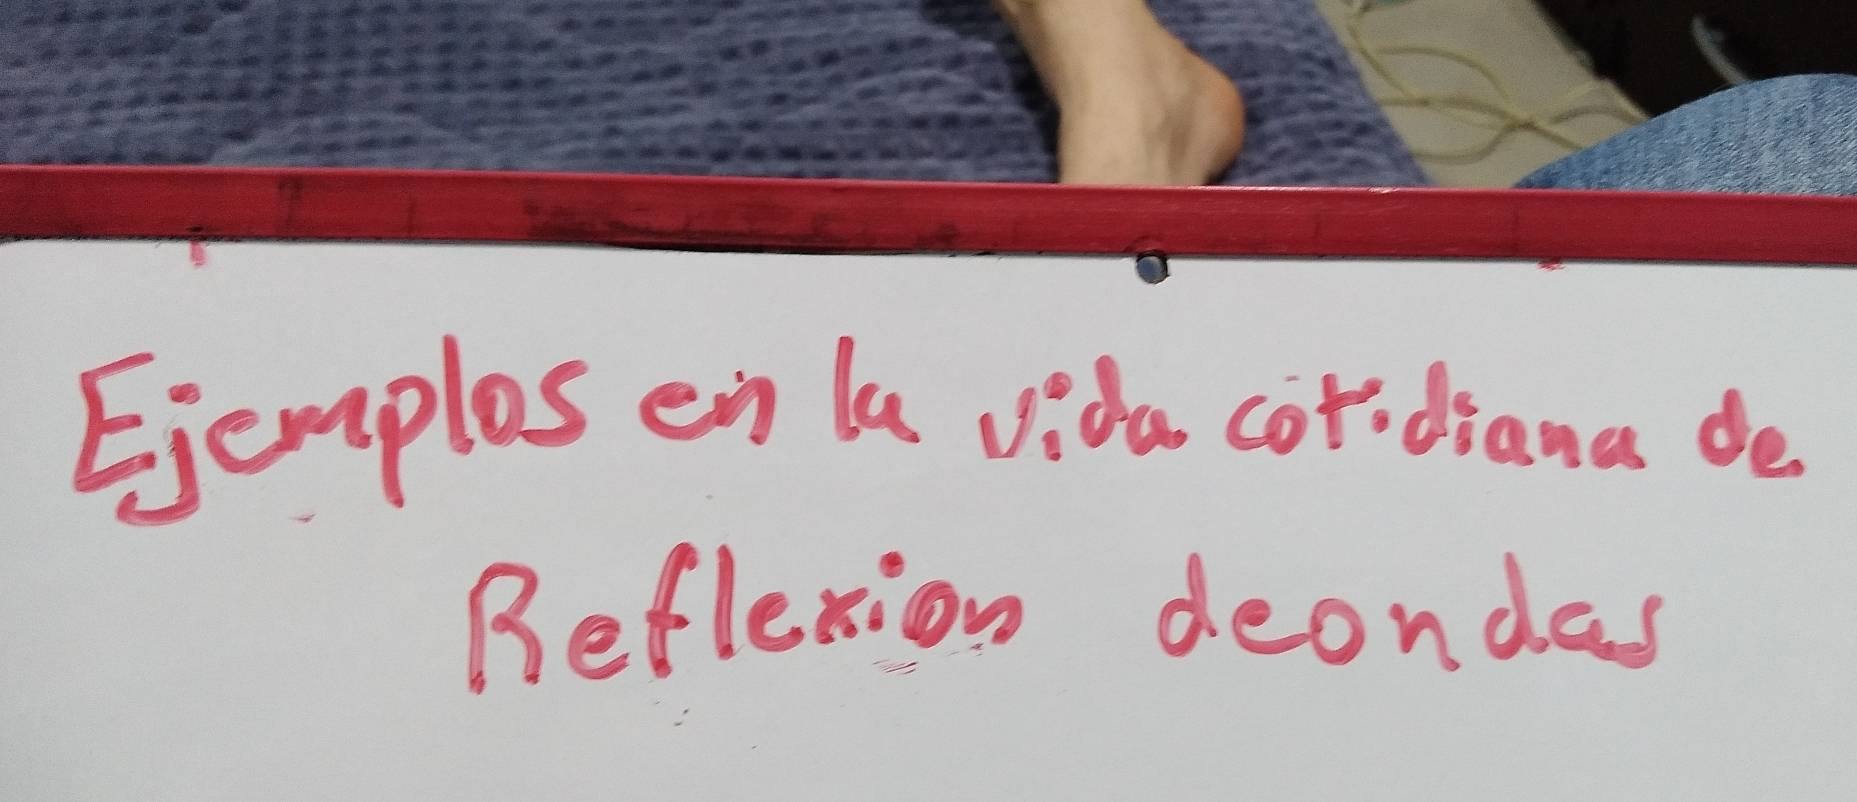 Ejemplos en la vida cotidiana de
Reflexion deondas